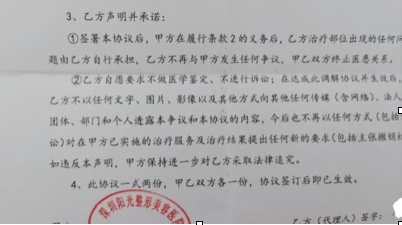 3、乙方声明并承诺：
①签署本协议后，甲方在履行条款2的义务后，乙方治疗部位出现的任何问
题由乙方自行承担，乙方不再与甲方发生任何争议，甲乙双方终止医患关系。
②乙方自愿要求不做医学鉴定、不进行诉讼；在达成此调解协议并生效后，
乙方不以任何文字、图片、影像以及其他方式向其他任何传媒（含网络）、法人
团体、部门和个人透露本争议和本协议的内容，今后也不再以任何方式（包括
讼）对在甲方已实施的治疗服务及治疗结果提出任何新的要求（包括主张撤销
如违反本声明，甲方保持进一步对乙方采取法律追究。
4、此协议一式两份，甲乙双方各一份，协议签订后即已生效。
深圳阳光整形美容医院
乙方（代理人）签字：